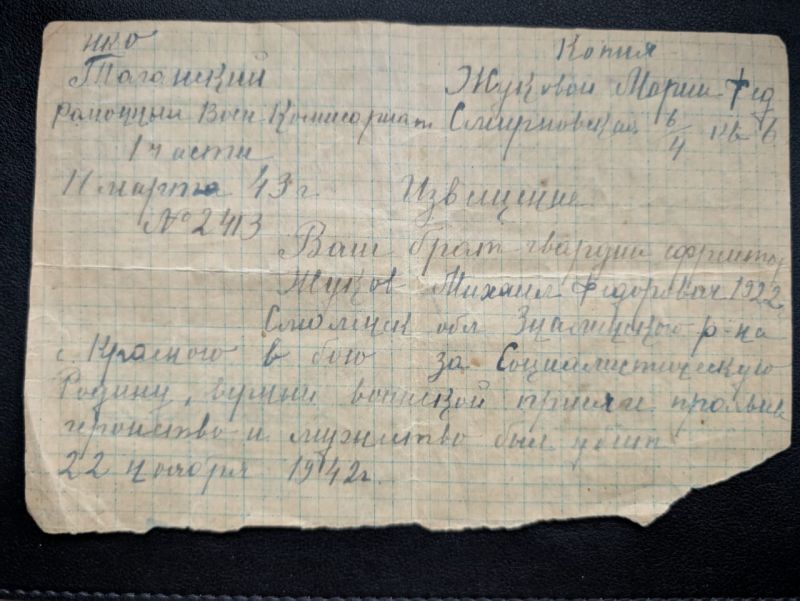 НКО
Копия
Таганский
Жуковой Марии Фед
районный Воен. Комисариат
Смирновская 6/4 кв 6
1 части
11 марта 43 г.
Извещение
№ 2413
Ваш брат гвардии ефрейтор
Жуков Михаил Федорович 1922
Смоленск обл Знаменского р-на
с. Красного в бою за Социалистическую
Родину, верный воинской присяге проявив
геройство и мужество был убит
22 ноября 1942 г.